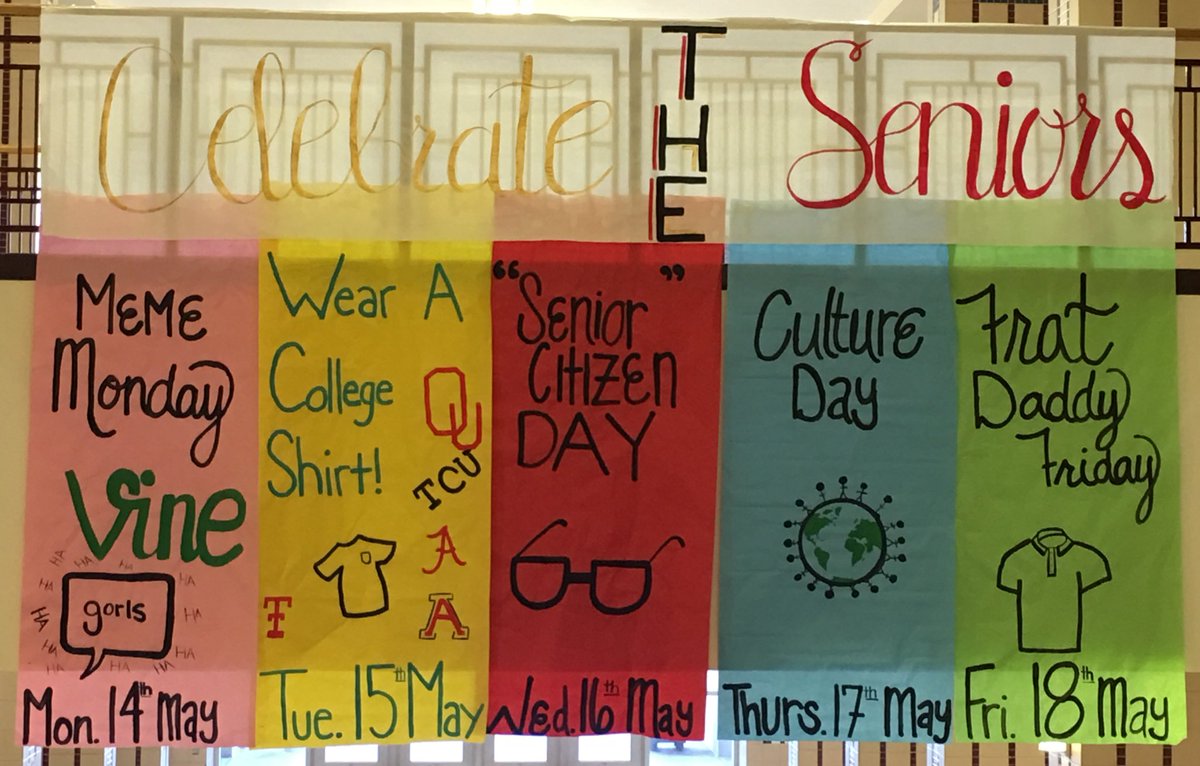 Celebrate THE Seniors
MEME
Monday
Vine
HA HA HA
HA HA
gorls
HA HA
HA HA
HA HA HA
Mon. 14th May
Wear A
College
Shirt!
OU
TCU
A
T A
Tue. 15th May
“Senior”
CITIZEN
DAY
Wed. 16th May
Culture
Day
Thurs. 17th May
Frat
Daddy
Friday
Fri. 18th May